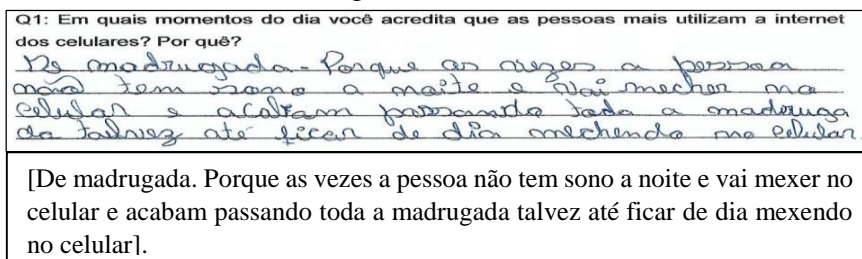 Q1: Em quais momentos do dia você acredita que as pessoas mais utilizam a internet
dos celulares? Por quê?
De madrugada - Porque as vezes a pessoa
não tem sono a noite e vai mecher no
celular e acabam passando toda a madruga
da talvez até ficar de dia mechendo no celular.
[De madrugada. Porque as vezes a pessoa não tem sono a noite e vai mexer no
celular e acabam passando toda a madrugada talvez até ficar de dia mexendo
no celular].